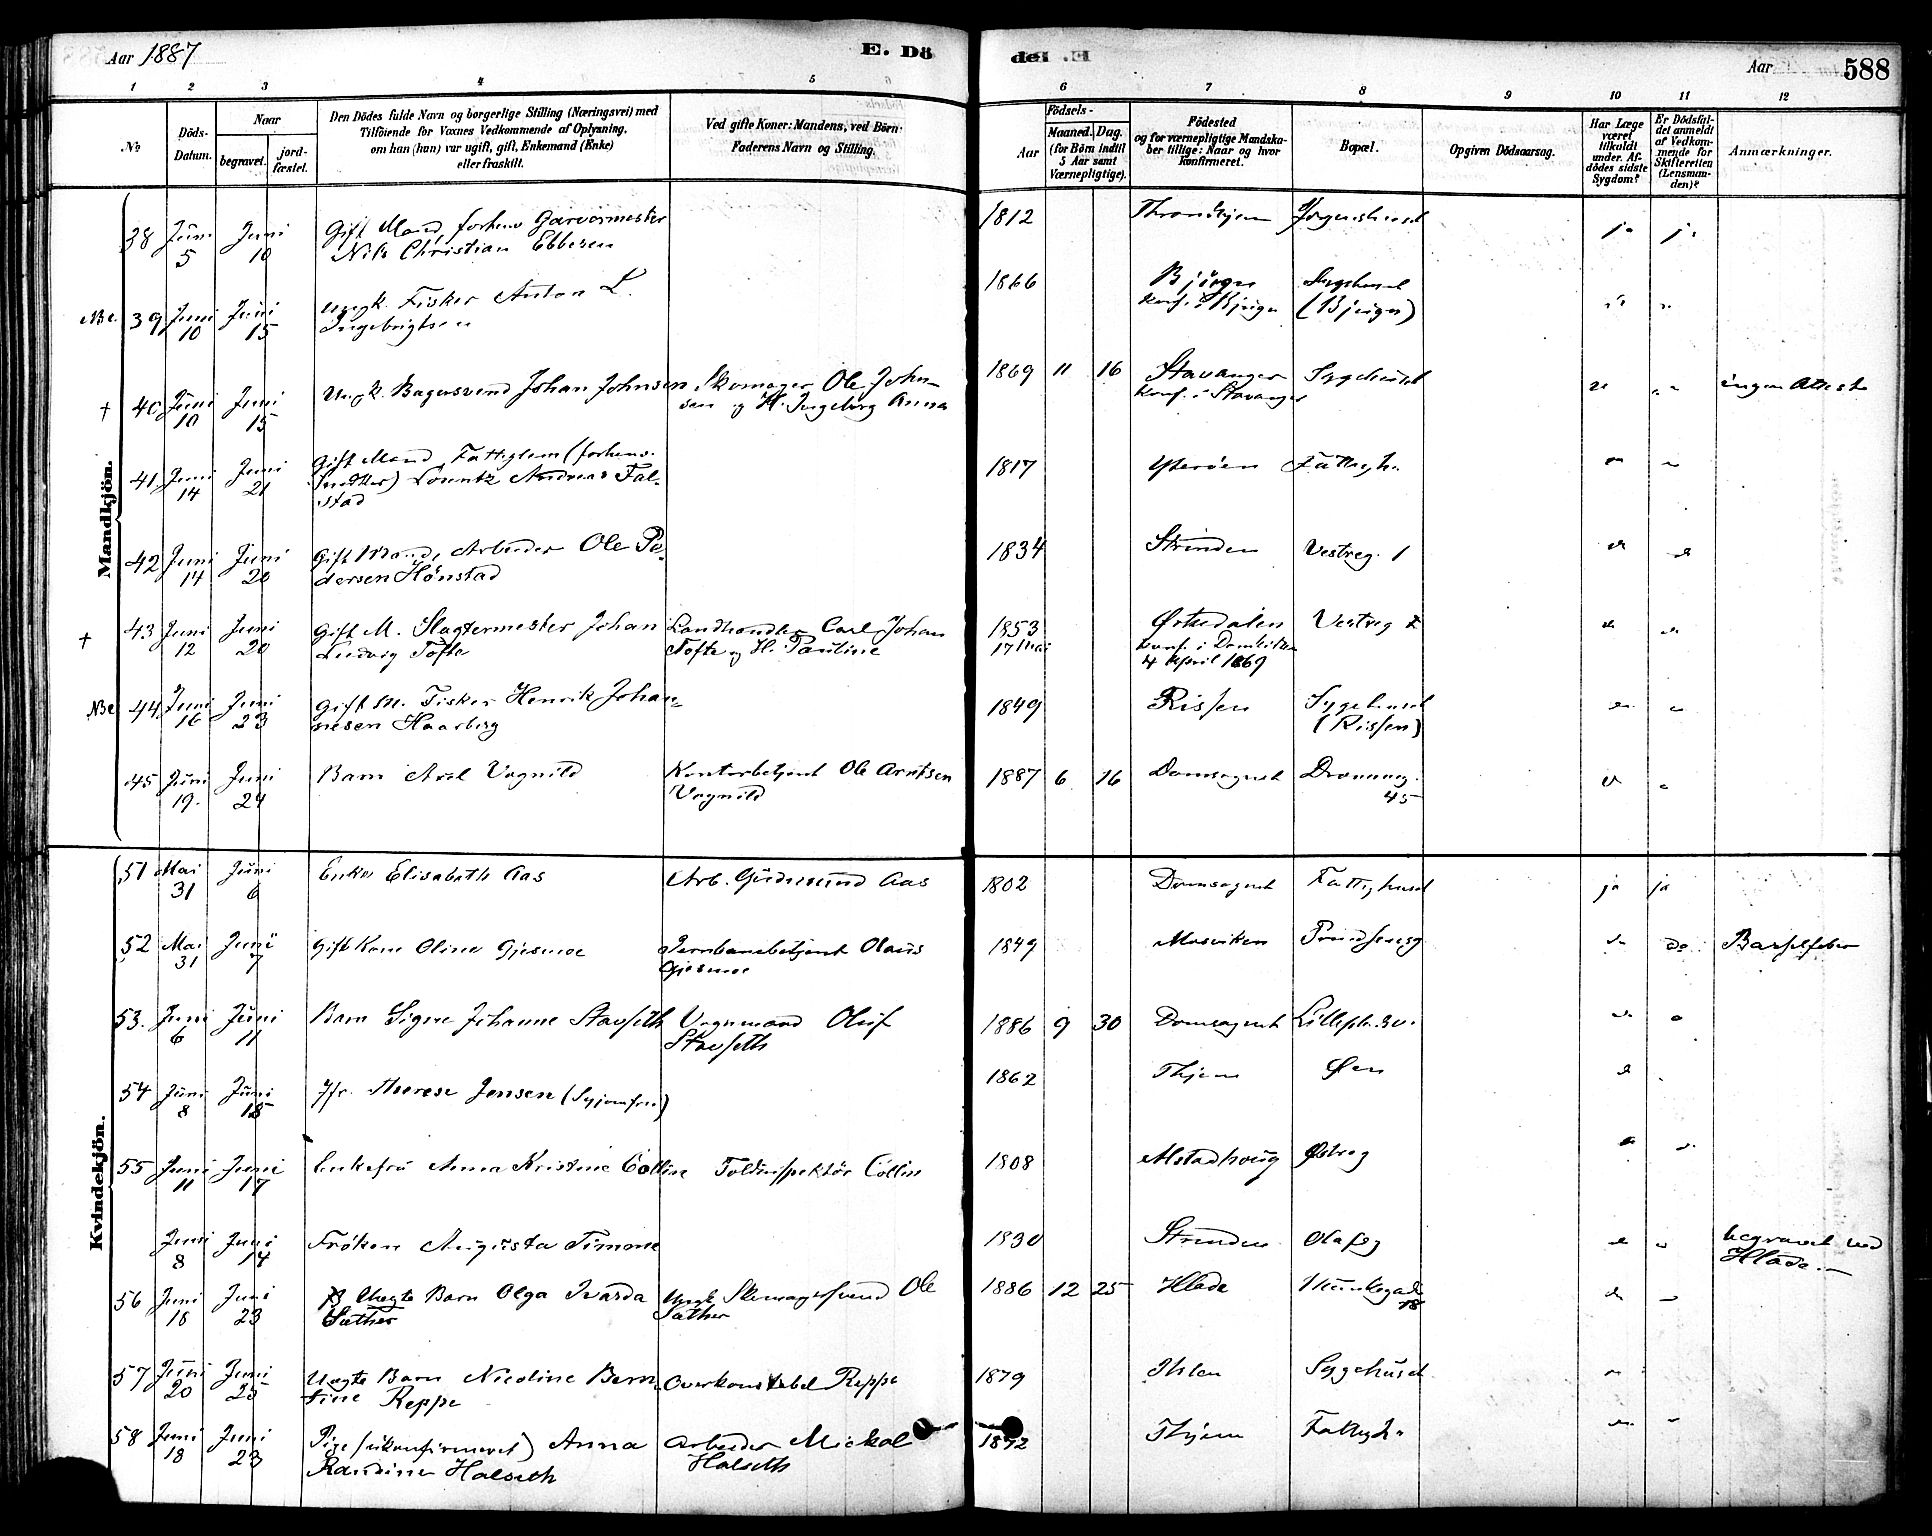 Aar 1887
E. Dö
del .E
Aar
588
1 2 3 4 5 6 7 8 9 10 11 12
No
Döds-Datum.
Naar
begravet.
jord-fæstet.
Den Dödes fulde Navn og borgerlige Stilling (Næringsvei) med
Tilföiende for Voxnes Vedkommende af Oplysning,
om han (hun) var ugift, gift, Enkemand (Enke)
eller fraskilt.
Ved gifte Koner: Mandens, ved Börn:
Faderens Navn og Stilling.
Födsels-
Aar
Maaned. Dag.
(for Börn indtil
5 Aar samt
Værnepligtige).
Födested
og for værnepligtige Mandska-
ber tillige: Naar og hvor
Konfirmeret.
Bopæl.
Opgiven Dödsaarsag.
Har Læge
været
tilkaldt
under. Af-
dödes sidste
Sygdom?
Er Dödsfal-
det anmeldt
af Vedkom-
mende for
Skifteretten
(Lensman-
den)?
Anmærkninger.
Mandkjön.
38 Juni 5 Juni 10 Gift Mand, forhenv Garvermester 1812 Throndhjem ja ja
Nils Christian Ebbesen
39 Juni 10 Juni 15 Ungk. Fisker Anton L. 1866 Bjugn Sygehuset
Ingebrigtsen Konf. i Bjugn (Bjugn)
† 40 Juni 10 Juni 15 Ungk. Bagersvend Johan Johnsen Skomager Ole John- 1869 11 16 Stavanger Sygehuset ingen Attest
sen og H. Ingeborg Anna Konf. i Stavanger
41 Juni 14 Juni 21 Gift Mand, Fattiglem (forhenv. 1817 Ytterøen Fattigh.
Snedker) Lorentz Andreas Fal-
stad
42 Juni 14 Juni 20 Gift Mand, Arbeider Ole Pe- 1834 Strinden Vestreg. 1
dersen Hønstad
† 43 Juni 12 Juni 20 Gift M. Slagtermester Johan Landhandler Carl Johan 1853 Ørkedalen Vestreg
Ludvig Tofte Tofte og H. Pauline 17 Mai Konf. i Domkirken
4 April 1869
44 Juni 16 Juni 23 Gift M. Fisker Henrik Johan- 1849 Rissen Sygehuset
nesen Haarberg (Rissen)
45 Juni 19. Juni 24 Barn Axel Vognild Kontorbetjent Ole Arntsen 1887 6 16 Domsognet Dronning.
Vognild 45
Kvindekjön.
51 Mai 31 Juni 6 Enke Elisabeth Aas Arb. Gudmund Aas 1802 Domsognet Fattighuset ja ja
52 Mai 31 Juni 7 Gift Kone Oline Gjesmoe Jernbanebetjent Olaus 1849 Mosviken Prindsensg do Barselfeber
Gjesmoe
53. Juni 6 Juni 11 Barn Signe Johanne Stavseth Vognmand Oluf 1886 9 30 Domsognet
Stavseth
54 Juni 8 Juni 15 Jfr. Therese Jensen (Syjomfru) 1862 Thjem Øen
55 Juni 11 Juni 17 Enkefru Anna Kristine Collin Toldinspektör Collin 1808 Alstadhoug Østreg
Juni 8 Juni 14 Frøken Augusta Timone 1830 Strinden Olafsg begravet ved
Hlade.
56 Juni 18 Juni 23 Uægte Barn Olga Ivarda Ungk Skomagersvend Ole 1886 12 25 Hlade Munkegad
Sæther Sæther 18
57 Juni 20 Juni 25 Uægte Barn Nicoline Bern- Overkonstabel Reppe 1879 Ihlen Sygehuset
tine Reppe
58 Juni 18 Juni 23 Pige (ukonfirmeret) Anna Arbeider Mickal 1872 Thjem Fattigh.
Randine Halseth Halseth